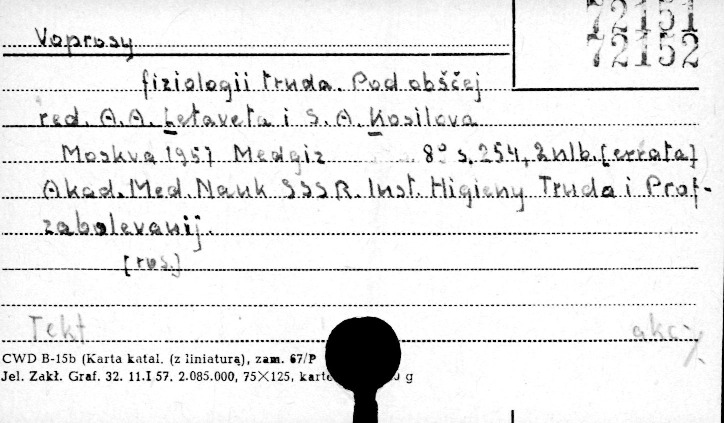 72151
72152
Voprosy
fiziologii truda. Pod obščej
red. A.A. Letaveta i S.A. Kosilova
Moskva 1957 Medgiz 8° s. 254, 2 nlb. [errata]
Akad. Med. Nauk SSSR. Inst. Higieny Truda i Prof-
zabolevanij.
[ros.]
Tekt akc.
CWD B-15b (Karta katal. (z liniaturą), zam. 67/P
Jel. Zakł. Graf. 32. 11.I 57. 2.085.000, 75×125, karto g